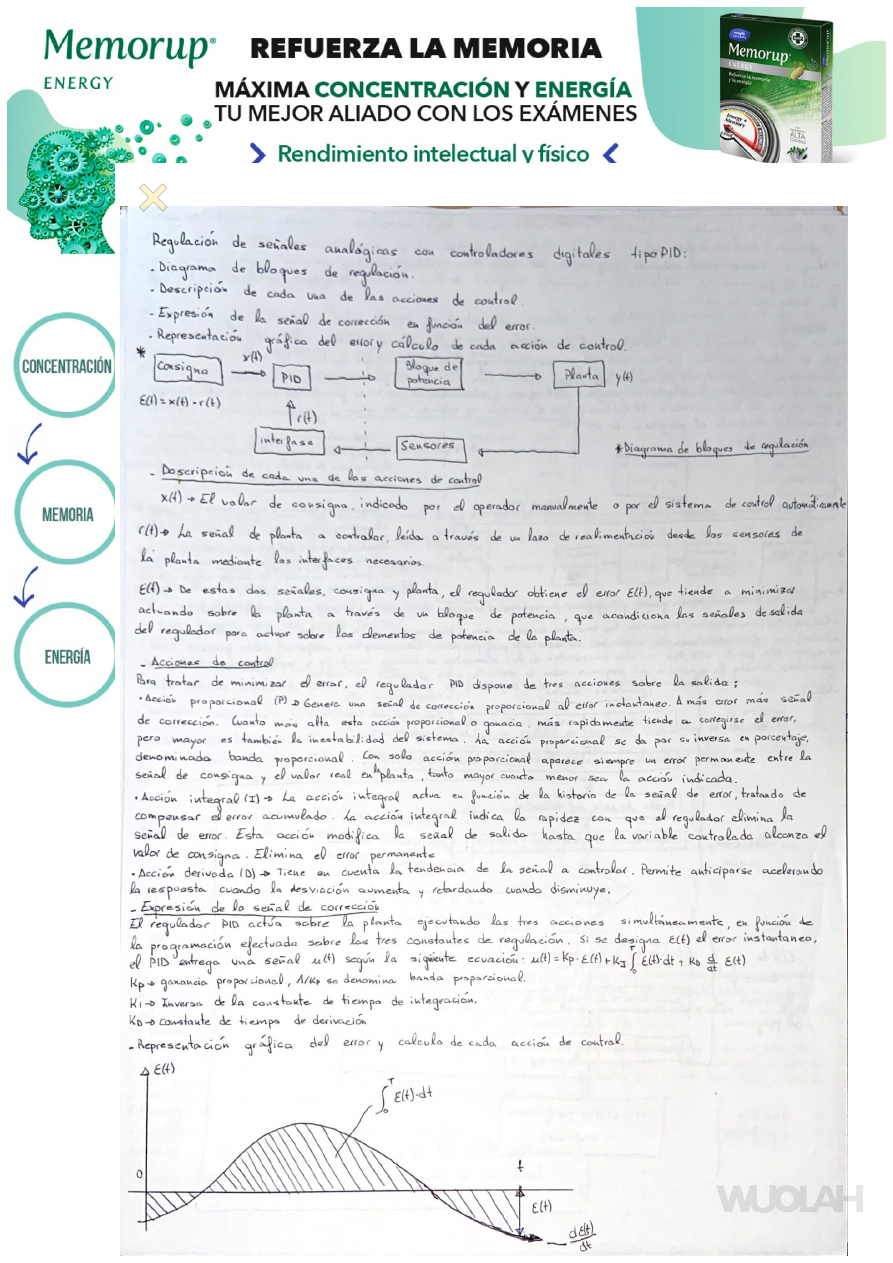 Memorup®
ENERGY
REFUERZA LA MEMORIA
MÁXIMA CONCENTRACIÓN Y ENERGÍA
TU MEJOR ALIADO CON LOS EXÁMENES
Rendimiento intelectual y físico
Memorup
ENERGY
Refuerza la memoria
y la energía
Energy +
Memory
ALTA
CONCENTRACIÓN
MEMORIA
ENERGÍA
Regulación de señales analógicas con controladores digitales tipo PID:
- Diagrama de bloques de regulación.
- Descripción de cada una de las acciones de control.
- Expresión de la señal de corrección en función del error.
- Representación gráfica del error y cálculo de cada acción de control.
* Consigna x(t) PID Bloque de potencia Planta y(t)
E(t) = x(t) - r(t)
r(t)
interfase Sensores
* Diagrama de bloques de regulación
- Doscripción de cada una de las acciones de control
x(t) → El valor de consigna, indicado por el operador manualmente o por el sistema de control automáticamente
r(t) → La señal de planta a controlar, leída a través de un lazo de realimentación desde los sensores de
la planta mediante los interfaces necesarios.
E(t) → De estas dos señales, consigna y planta, el regulador obtiene el error E(t), que tiende a minimizar
actuando sobre la planta a través de un bloque de potencia, que acondiciona las señales de salida
del regulador para actuar sobre los elementos de potencia de la planta.
- Acciones de control
Para tratar de minimizar el error, el regulador PID dispone de tres acciones sobre la salida:
· Acción proporcional (P) → Genera una señal de corrección proporcional al error instantaneo. A más error más señal
de corrección. Cuanto más alta esta acción proporcional o ganacia, más rapidamente tiende a corregirse el error,
pero mayor es también la inestabilidad del sistema. La acción proporcional se da por su inversa en porcentaje,
denominada banda proporcional. Con solo acción proporcional aparece siempre un error permanente entre la
señal de consigna y el valor real en la planta, tanto mayor cuanto menor sea la acción indicada.
· Acción integral (I) → La acción integral actua en función de la historia de la señal de error, tratando de
compensar el error acumulado. La acción integral indica la rapidez con que el regulador elimina la
señal de error. Esta acción modifica la señal de salida hasta que la variable controlada alcanza el
valor de consigna. Elimina el error permanente
· Acción derivada (D) → Tiene en cuenta la tendencia de la señal a controlar. Permite anticiparse acelerando
la respuesta cuando la desviación aumenta y retardando cuando disminuye.
- Expresión de la señal de corrección
El regulador PID actúa sobre la planta ejecutando las tres acciones simultáneamente, en función de
la programación efectuada sobre las tres constantes de regulación. Si se designa E(t) el error instantaneo,
el PID entrega una señal u(t) según la siguiente ecuación: u(t) = Kp · E(t) + KI ∫₀ᵀ E(t)·dt + KD d/dt E(t)
Kp → ganancia proporcional, 1/Kp se denomina banda proporcional.
KI → Inversa de la constante de tiempo de integración.
KD → Constante de tiempo de derivación
- Representación gráfica del error y calculo de cada acción de control.
E(t)
∫₀ᵀ E(t)·dt
0
t
E(t)
dE(t)/dt
WUOLAH